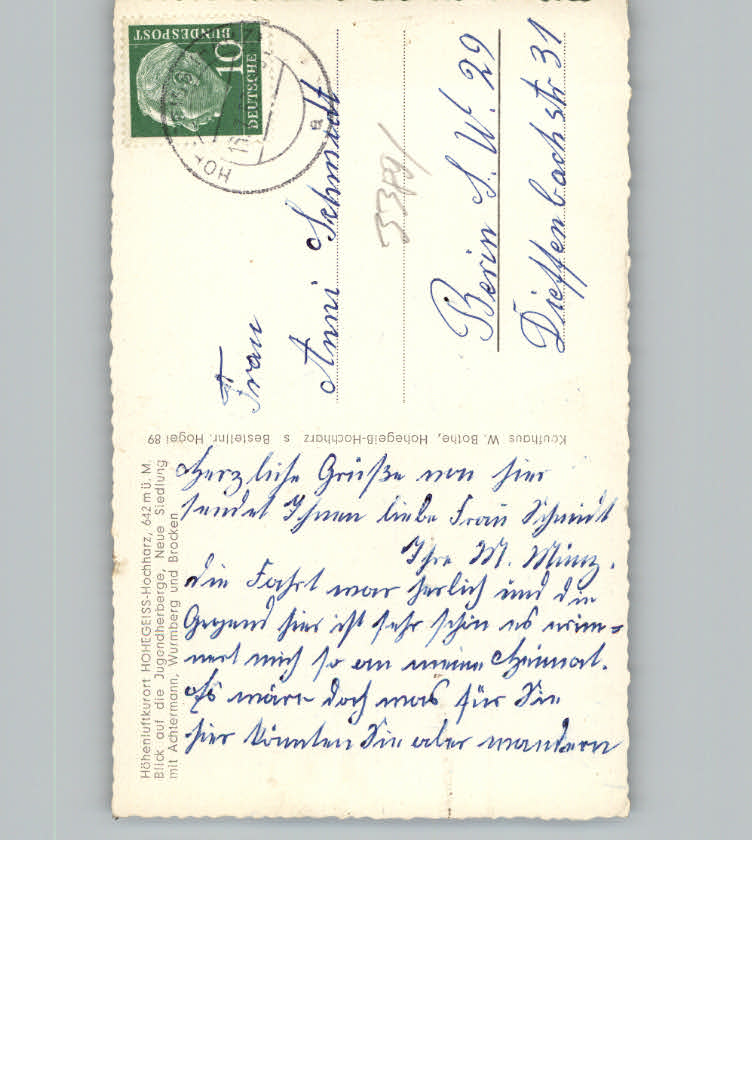 Höhenluftkurort HOHEGEISS-Hochharz, 642 m ü. M.
Blick auf die Jugendherberge, Neue Siedlung
mit Achtermann, Wurmberg und Brocken
Herzliche Grüße von hier
sendet Ihnen liebe Frau Schmidt
Ihre M. Minz.
die Fahrt war herlich und die
Gegend hier ist sehr schön es erin=
nert mich so an meine Heimat.
Es wäre doch was für Sie
hier könnten Sie aber wandern
Kaufhaus W. Bothe, Hohegeiß-Hochharz s Bestellnr. Hogei 89
DEUTSCHE
BUNDESPOST
10
HO
15
a
Frau
Anni Schmidt
Berin S.W. 29
Dieffenbachstr 31